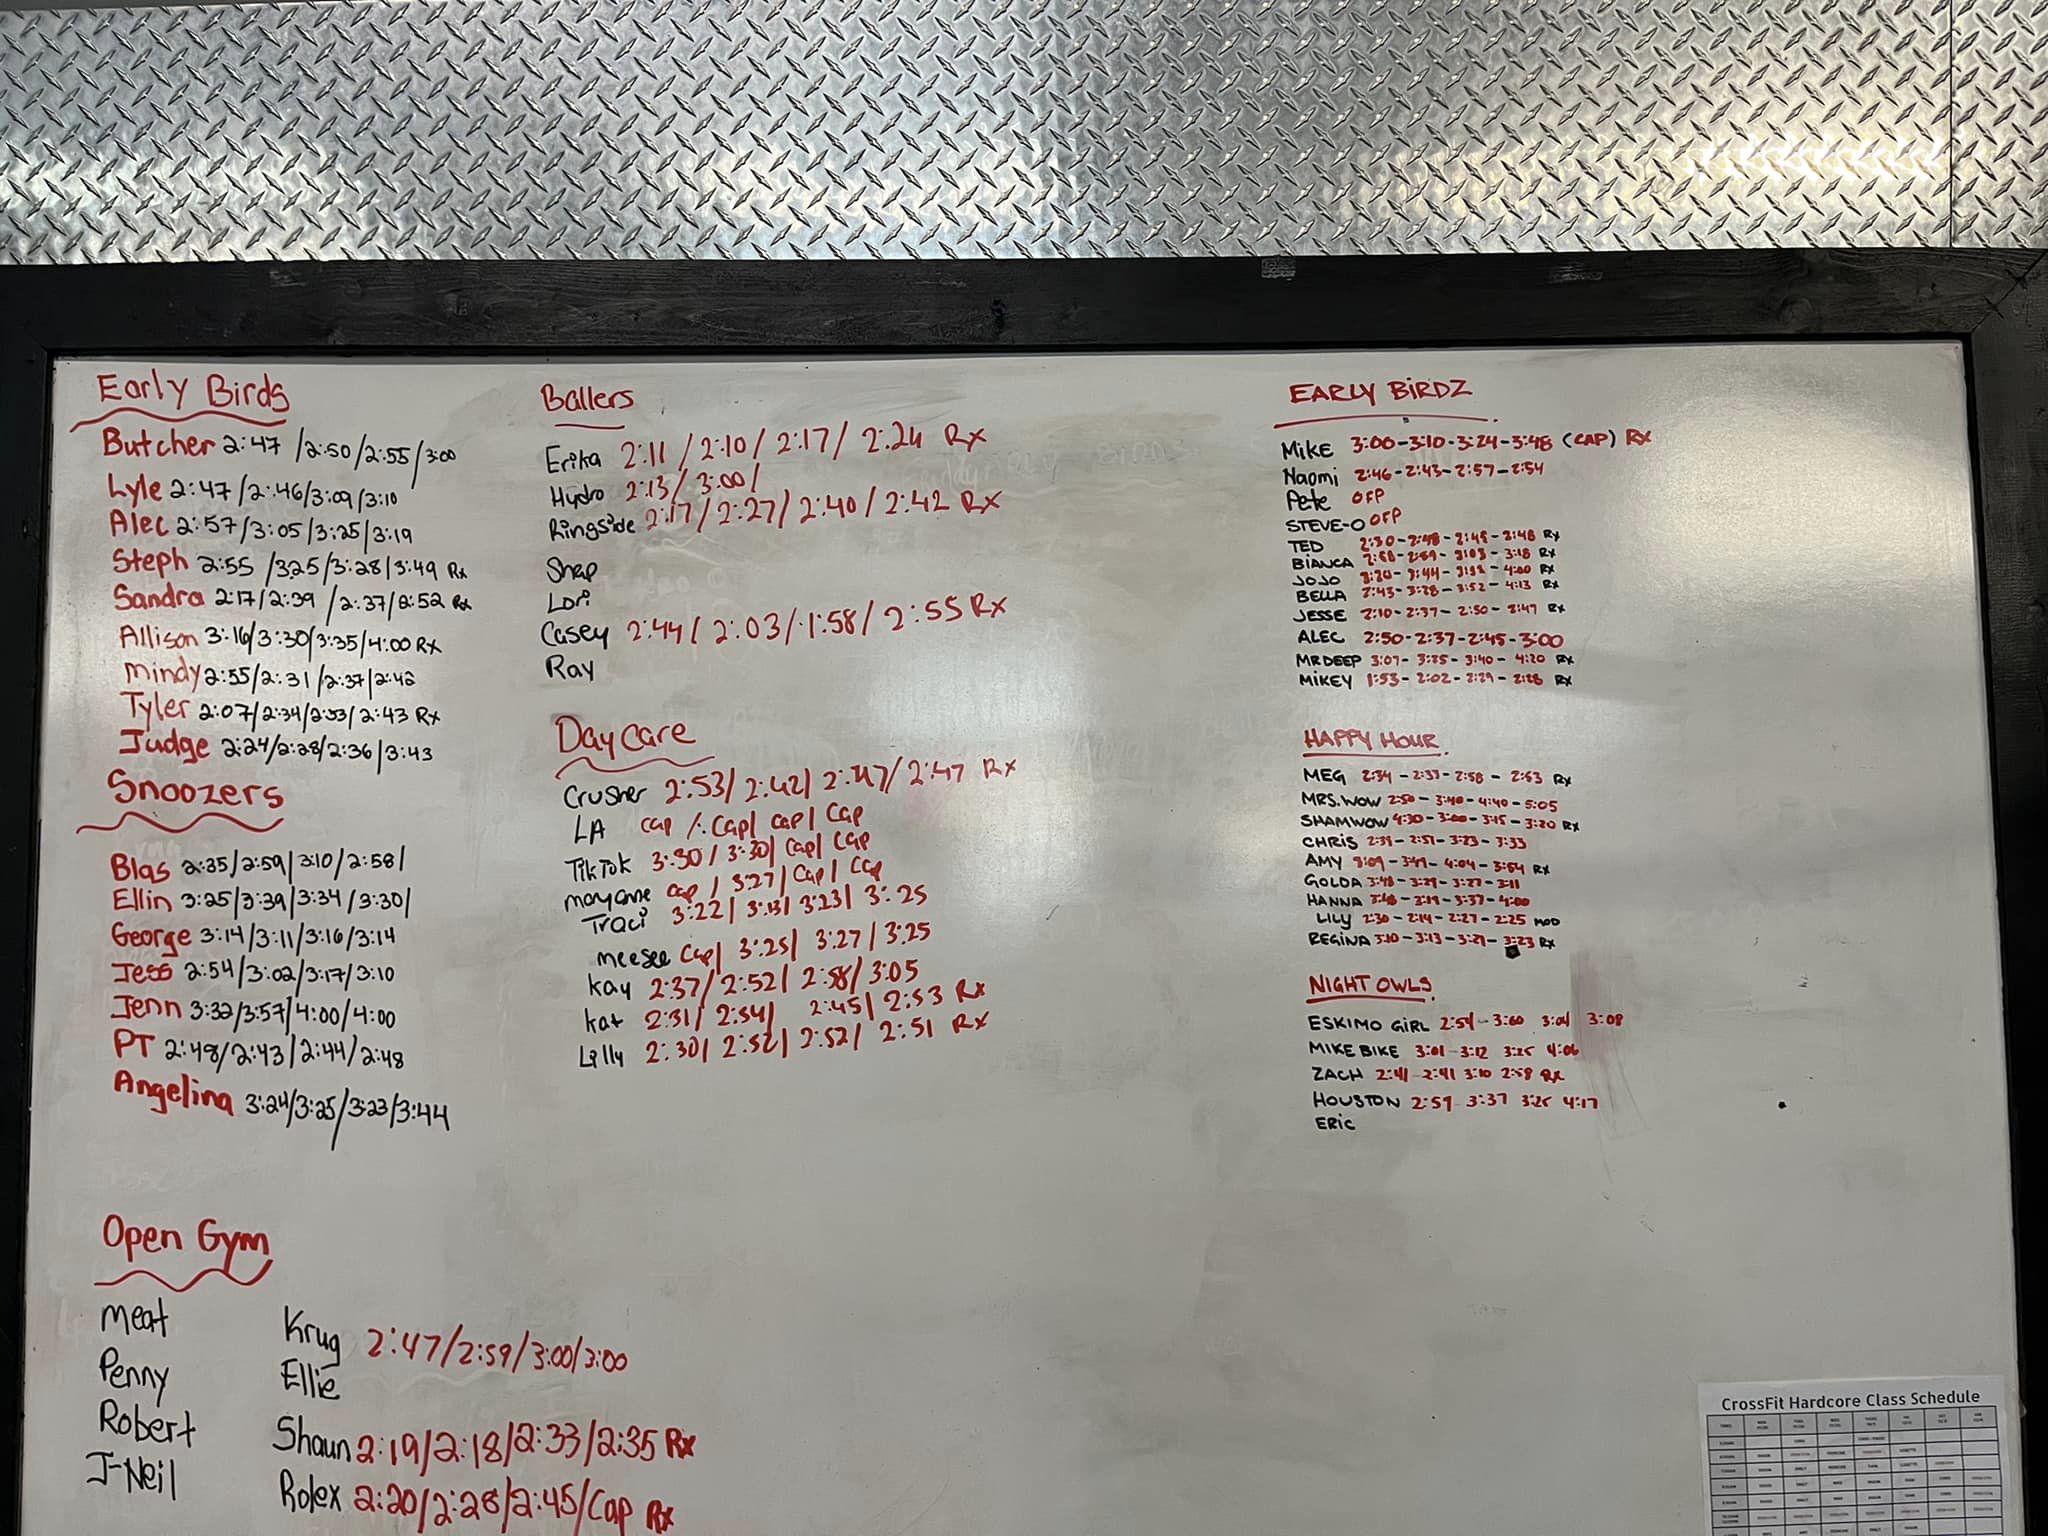 Early Birds
Butcher 2:47 /2:50/2:55/3:00
Lyle 2:47/2:46/3:09/3:10
Alec 2:57/3:05/3:25/3:19
Steph 2:55 /325/3:28/3:49 Rx
Sandra 2:17/2:39 /2:37/2:52 Rx
Allison 3:16/3:30/3:35/4:00 Rx
Mindy 2:55/2:31/2:37/2:42
Tyler 2:07/2:34/2:33/2:43 Rx
Judge 2:24/2:28/2:36/3:43
Snoozers
Blas 2:35/2:59/3:10/2:58/
Ellin 3:25/3:39/3:34/3:30/
George 3:14/3:11/3:16/3:14
Jess 2:54/3:02/3:17/3:10
Jenn 3:32/3:57/4:00/4:00
PT 2:48/2:43/2:44/2:48
Angelina 3:24/3:25/3:23/3:44
Open Gym
Meat
Penny
Robert
J-Neil
Krug 2:47/2:59/3:00/3:00
Ellie
Shaun 2:19/2:18/2:33/2:35 Rx
Rolex 2:20/2:28/2:45/Cap Rx
Ballers
Erika 2:11 / 2:10 / 2:17 / 2:24 Rx
Hydro 2:13/ 3:00/
Ringside 2:17/2:27/2:40/2:42 Rx
Shep
Lori
Casey 2:44/ 2:03/ 1:58/ 2:55 Rx
Ray
Daycare
Crusher 2:53/ 2:42/ 2:47/ 2:47 Rx
LA cap / cap/ cap/ cap
TikTok 3:30/ 3:30/ cap/ cap
maryanne cap / 3:27/ cap/ cap
Traci 3:22/ 3:13/ 3:23/ 3:25
meesee cap/ 3:25/ 3:27 / 3:25
Kay 2:37/ 2:52/ 2:58/ 3:05
Kat 2:31/ 2:54/ 2:45/ 2:53 Rx
Lilly 2:30/ 2:52/ 2:52/ 2:51 Rx
EARLY BIRDZ
MIKE 3:00-3:10-3:24-3:48 (CAP) RX
Naomi 2:46-2:43-2:57-2:54
Pete OFP
STEVE-O OFP
TED 2:30-2:48-2:48 RX
BIANCA 2:58-2:59-3:18 RX
JOJO 4:00 RX
BELLA 2:43-3:28-3:52-4:13 RX
JESSE 2:10-2:37-2:50-2:47 RX
ALEC 2:50-2:37-2:45-3:00
MR DEEP 3:07-3:35-3:40-4:20 RX
MIKEY 1:53-2:02-2:29-2:28 RX
HAPPY HOUR
MEG 2:34-2:37-2:58-2:53 RX
MRS. WOW 2:50-3:40-4:40-5:05
SHAMWOW 4:30-3:00-3:15-3:20 RX
CHRIS 2:39-2:51-3:23-3:33
AMY 3:09-3:49-4:04-3:54 RX
GOLDA 3:48-3:29-3:27-3:11
HANNA 3:48-3:19-3:37-4:00
LILY 2:30-2:14-2:27-2:25 MOD
REGINA 3:10-3:13-3:21-3:23 RX
NIGHT OWLS
ESKIMO GIRL 2:54-3:00 3:04 3:08
MIKE BIKE 3:01-3:12 3:25 4:06
ZACH 2:41-2:41 3:10 2:58 RX
HOUSTON 2:59 3:37 3:25 4:17
ERIC
CrossFit Hardcore Class Schedule